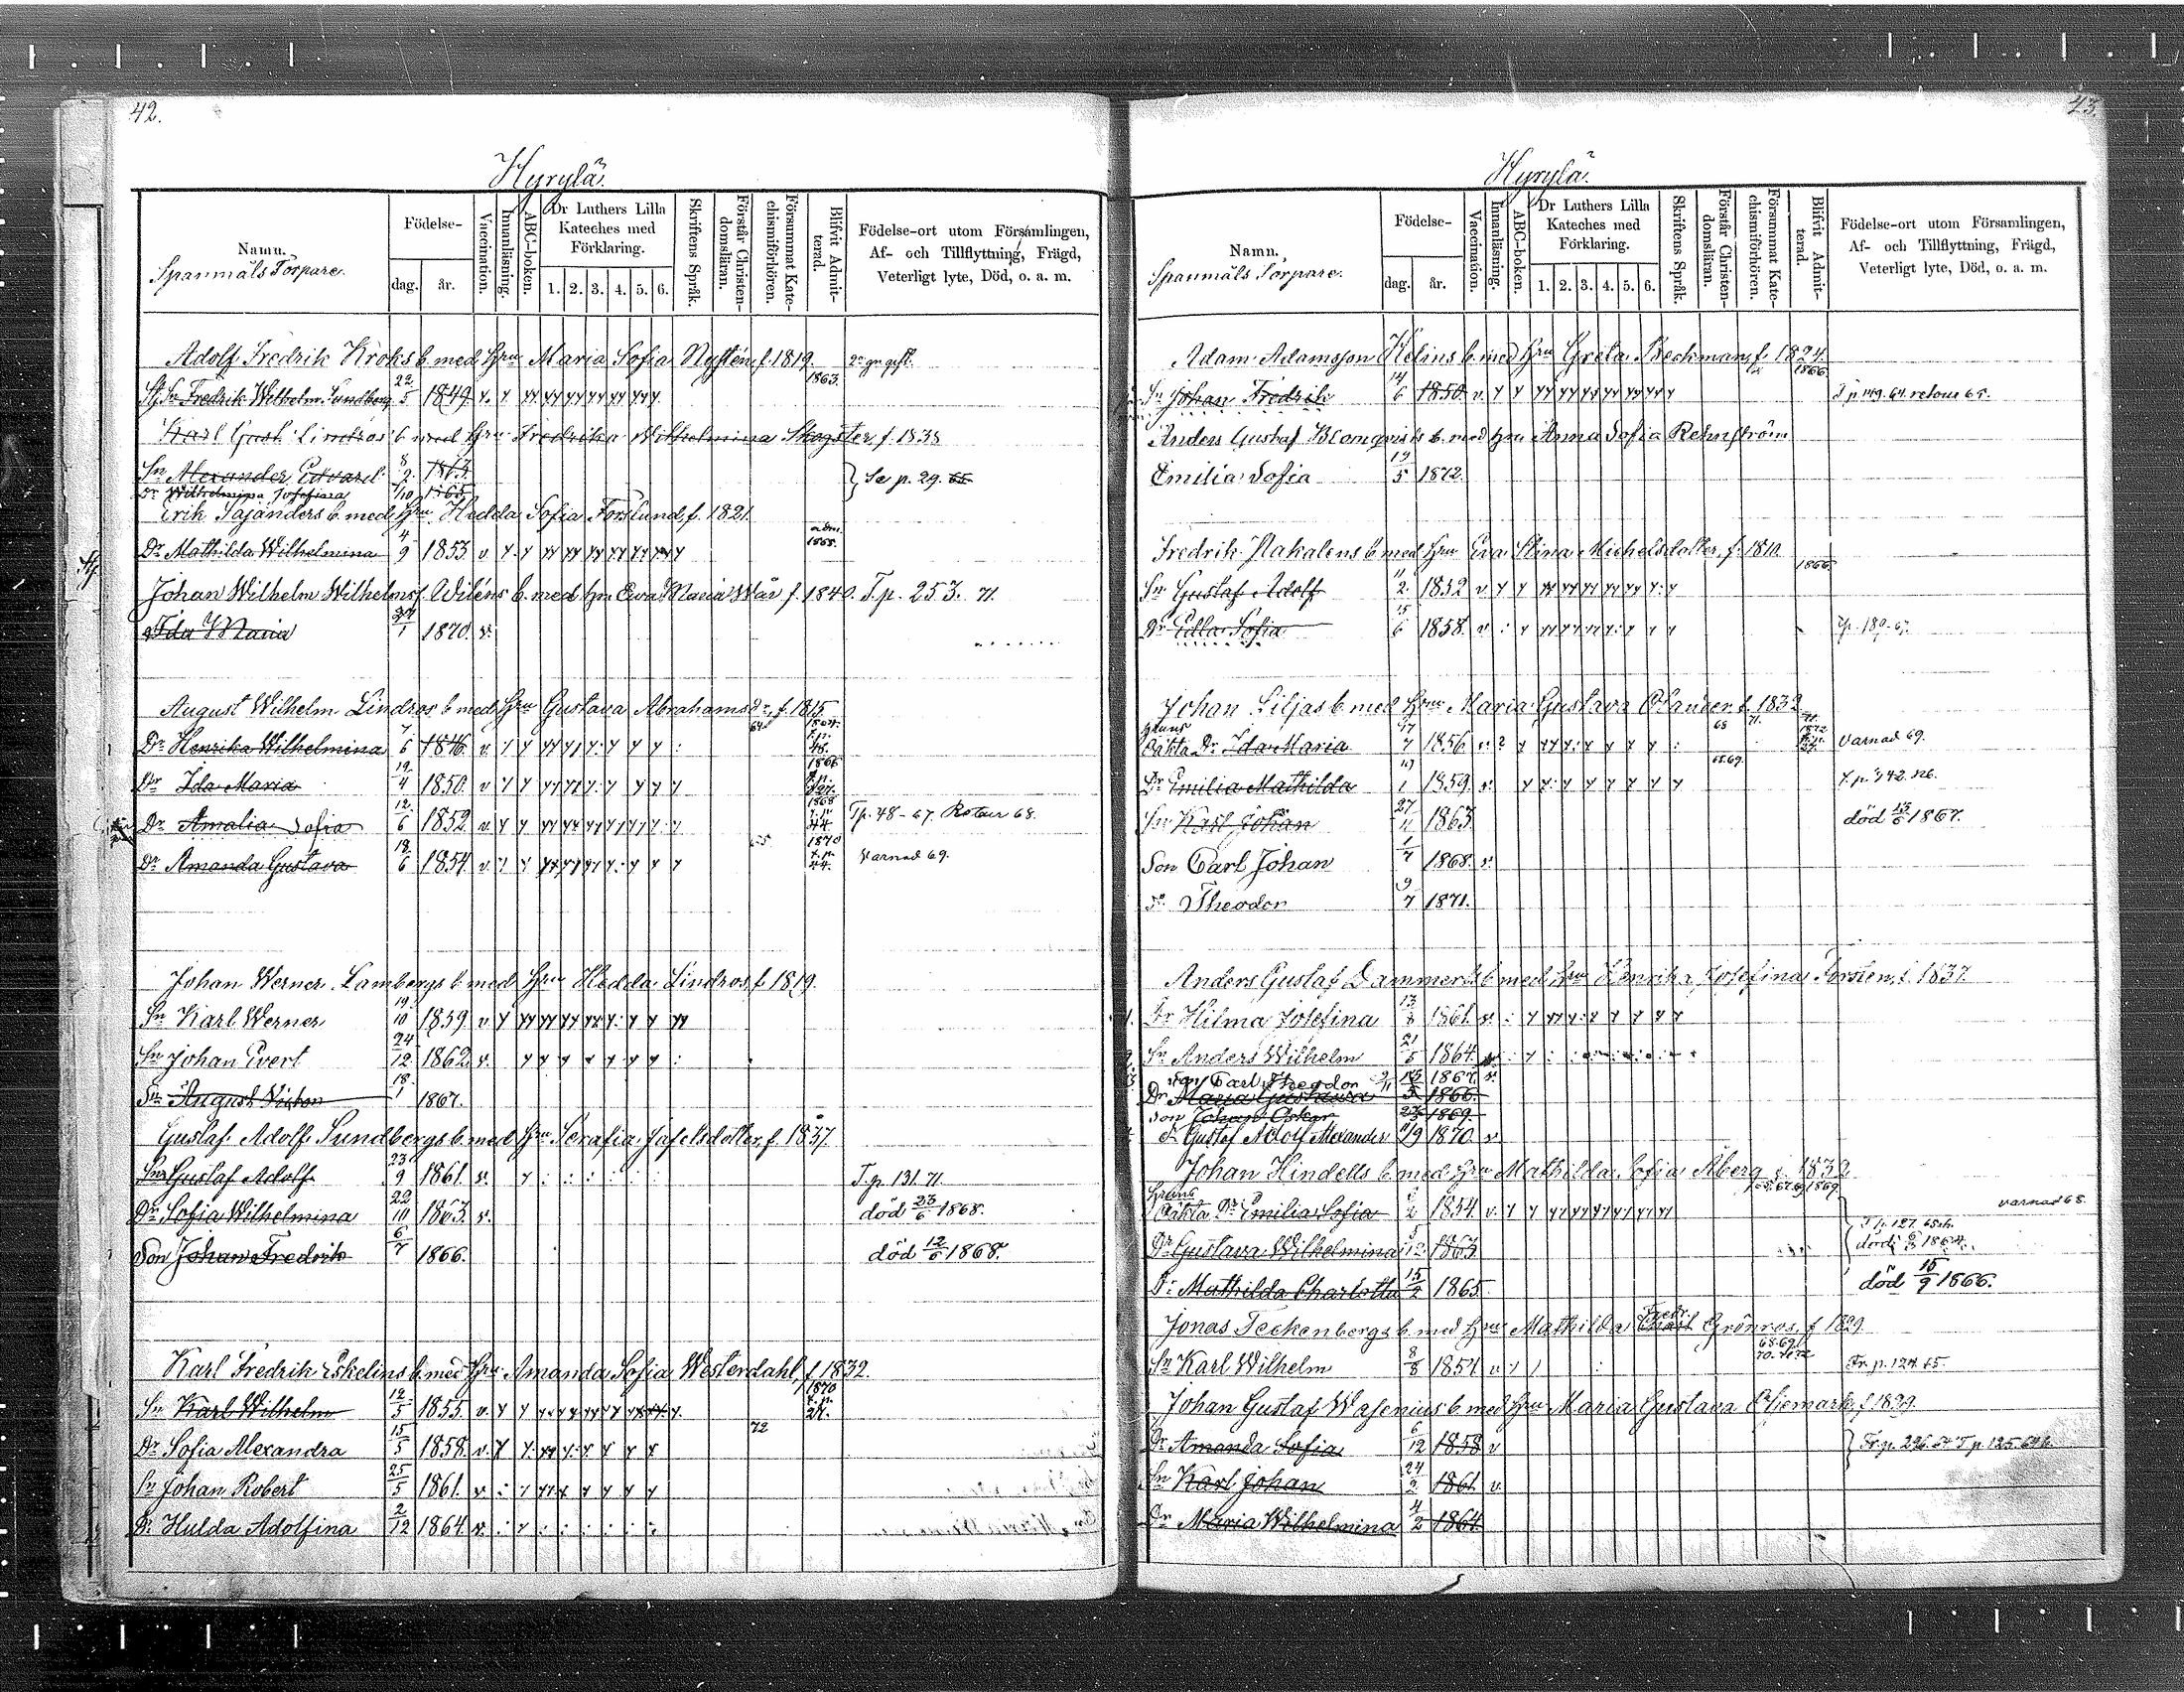 42.
Hyrylä.
Namn.
Spanmåls Torpare.
Födelse-
dag. år.
Vaccination.
Innanläsning.
ABC-boken.
Dr Luthers Lilla
Kateches med
Förklaring.
1. 2. 3. 4. 5. 6.
Skriftens Språk.
Förstår Christen-
domsläran.
Försummat Kate-
chismiförhören.
Blifvit Admit-
terad.
Födelse-ort utom Församlingen,
Af- och Tillflyttning, Frägd,
Veterligt lyte, Död, o. a. m.
Adolf Fredrik Kroks b. med Hru Maria Sofia Nystén f. 1819.
1863.
Fredrik Wilhelm Sundberg 22/5 1849. v.
Karl Gust. Lindros b med Hru Fredrika Wilhelmina Skogster, f. 1838
Sn Alexander Edvard 8/2 1863 Se p. 29. 65.
Dr Wilhelmina Josefina /10 1865
Erik Sajanders b. med Hru Hedda Sofia Forslund, f. 1821.
Dr Mathilda Wilhelmina 4/9 1853 v adm. 1868.
Johan Wilhelm Wilhelmsf. Wiléns b. med hru Ewa Maria Wår f. 1840. T. p. 253. 71.
Ida Maria 27/1 1870. v.
August Wilhelm Lindros b med Hru Gustava Abrahams Dr, f. 1815
Dr Henrika Wilhelmina 7/6 1846. v. 64 1864. 48.
Dr Ida Maria 19/4 1850. v 1866
Dr Amalia Sofia 12/6 1852. v. 1868 44. Tp. 48-67. Retour 68.
Dr Amanda Gustava 18/6 1854. v 1870 t.p. 44. Varnad 69.
Johan Werner Lambergs b med Hru Hedda Lindros, f 1819.
Sn Karl Werner 19/10 1859 v
Sn Johan Evert 24/12 1862. v.
Sn August Victor 18/1 1867.
Gustaf Adolf Sundbergs b. med Hru Serafia Jafetsdotter, f. 1837.
Sn Gustaf Adolf 23/9 1861. v. T. p. 131. 71.
Dr Sofia Wilhelmina 22/10 1863. v. död 23/6 1868.
Son Johan Fredrik 6/7 1866. död 12/6 1868.
Karl Fredrik Eskelins b. med Hru Amanda Sofia Westerdahl, f 1832.
Sn Karl Wilhelm 12/5 1855. v. 1870 t.p. 27.
Dr Sofia Alexandra 15/5 1858. v. 72
Sn Johan Robert 25/5 1861. v.
Dr Hulda Adolfina 2/12 1864. v.
43.
Hyrylä.
Namn.
Spanmåls Torpare.
Födelse-
dag. år.
Vaccination.
Innanläsning.
ABC-boken.
Dr Luthers Lilla
Kateches med
Förklaring.
1. 2. 3. 4. 5. 6.
Skriftens Språk.
Förstår Christen-
domsläran.
Försummat Kate-
chismiförhören.
Blifvit Admit-
terad.
Födelse-ort utom Församlingen,
Af- och Tillflyttning, Frägd,
Veterligt lyte, Död, o. a. m.
Adam Adamsson Helins b. med Hru Greta Beckman, f. 1824.
1866
Sn Johan Fredrik 14/6 1850. v. T p. 149. 64. retour 65.
Anders Gustaf Blomqvists b. med hru Anna Sofia Rehnström
Emilia Sofia 19/5 1872.
Fredrik Hakalens b med Hru Eva Stina Michelsdotter, f. 1810
1866
Sn Gustaf Adolf 11/2 1852 v.
Dr Edla Sofia 15/6 1858. v Tp. 189. 67.
Johan Liljas b med Hru Maria Gustava Olander f. 1832
Oäkta Dr Ida Maria 17/7 1856 v. 68 71. 1872 Varnad 69.
Dr Emilia Mathilda 1859. v. 68.69.
Sn Karl Johan 27/11 1863. död 13/6 1867.
Son Carl Johan 1/7 1868. v.
Theodor 9/7 1871.
Anders Gustaf Dammerts b med Hru Henrika Josefina Forstén, f. 1837.
1. Dr Hilma Josefina 13/8 1861. v.
2. Sn Anders Wilhelm 21/5 1864.
Son Carl Theodor 2/11 1867. v.
Dr Maria Gustava 1866.
Son Johan Oskar 1869.
Gustaf Adolf Alexander 11/9 1870 v.
Johan Hindells b. med Hru Mathilda Sofia Åberg f. 1832
Oäkta Dr Emilia Sofia 1854. v. 1869. varnad 68.
T p. 127. 65.
Dr Gustava Wilhelmina 5/12 1863 död 1864.
Dr Mathilda Charlotta 15/2 1865. död 15/9 1866.
Jonas Teckenbergs b. med Hru Mathilda Fredr. Grönros, f 1829
68.69.
Sn Karl Wilhelm 8/8 1857 v Fr. p. 124. 65.
Johan Gustaf Wasenius b. med Hru Maria Gustava f 1839.
Dr Amanda Sofia 6/12 1858 v
Sn Karl Johan 24/2 1861 v.
Dr Maria Wilhelmina 4/2 1864.